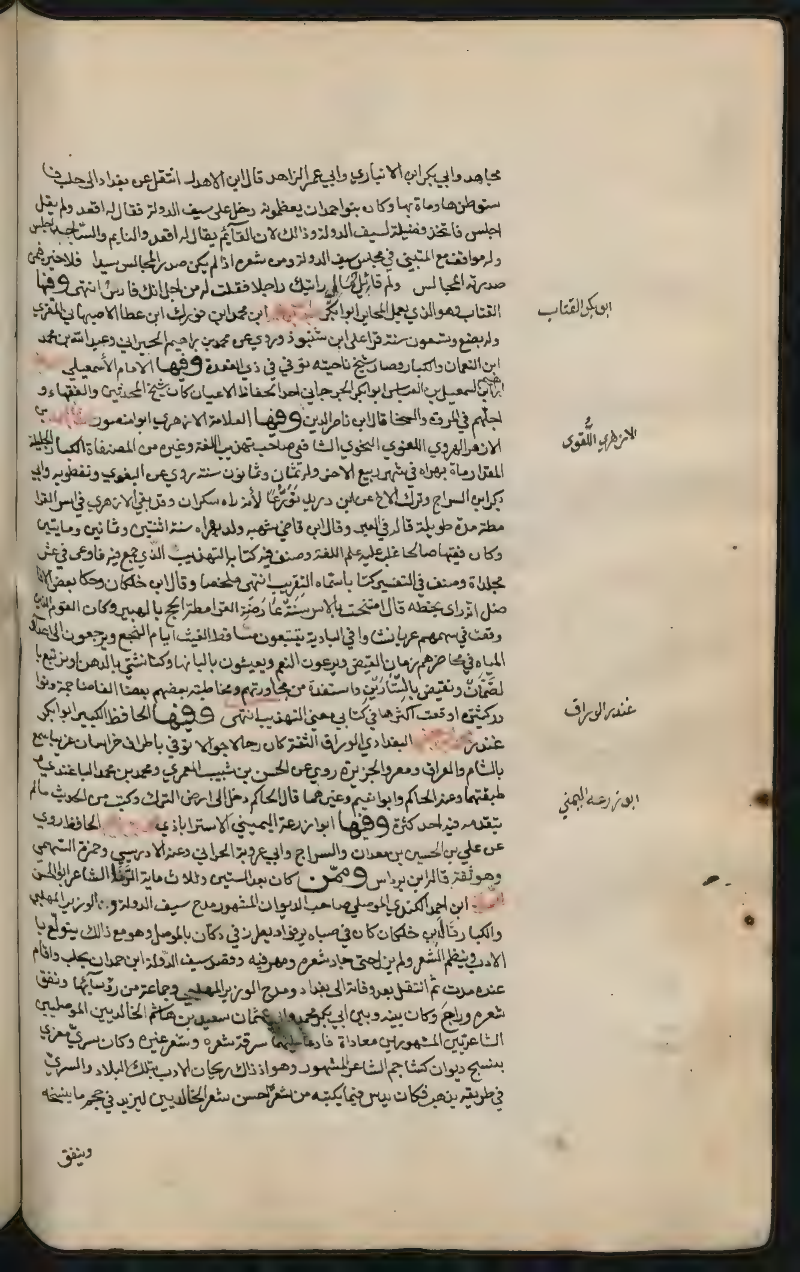 مجاهد وابي بكر ابن الانباري وابي عمر الزاهد قال ابن الاهدل انتقل عن بغداد الى حلب فا
ستوطنها ومات بها وكان بنو احمدان يعظمونه دخل على سيف الدولة فقال له اقعد ولم يقل
اجلس فاتخذ فضيلة لسيف الدولة وذالك لان القائم يقال له اقعد والنايم والساجد اجلس
وله مواقف مع المتنبي في مجلس سيف الدولة ومن شعره اذا لم يكن صدر المجالس سيدا فلا خير فيمن
صدرته المجالس ولم قائل مالي رايتك راجلا فقلت له من اجل انك فارس انتهى وفيها
القتاب وهو الذي يعمل المحامل ابو بكر ابن محمد ابن فورك ابن عطا الاصبهاني المقري
وله بضع وتسعون سنة قرا على ابن شنبوذ وروي عن محمد بن ابراهيم الحيراني وعبد الله بن محمد
ابن النعمان والكبار وصار شيخ ناحيته توفي في ذي القعدة وفيها الامام الأسمعيلي
ابن اسمعيل بن العباس ابو بكر الجرجاني احد الحفاظ الاعيان كان شيخ المحدثين والفقهاء و
اجلهم في المروة والسخا قال ابن ناصر الدين وفيها العلامة الازهري ابو منصور بن
الازهر الهروي اللغوي النحوي الشافعي صاحب تهذيب اللغة وغيره من المصنفاة الكبار الجليلة
المقدار مات بهراه في شهر ربيع الاخر وله ثمان وثمانون سنة روي عن البغوي ونفطويه وابي
بكر ابن السراج وترك الاخذ عن ابن دريد تورعا لأنه راه سكران وقد بقي الازهري في اسر القرا
مطة مدة طويلة قاله في العبر وقال ابن قاضي شهبه ولد بهراه سنة اثنتين وثمانين ومايتين
وكان فقيها صالحا غلب عليه علم اللغة وصنف فيه كتابه التهذيب الذي جمع فيه فاوعى في عشر
مجلداة وصنف في التفسير كتابا سماه التقريب انتهى ملخصا وقال ابن خلكان وحكا بعض الافا
ضل انه راى بخطه قال امتحنت بالاسر سنة عارضة القرامطة الحج بالهبير وكان القوم الذين
وقعت في سهمهم عربا نشاوا في البادية يتتبعون مساقط الغيث ايام النجع ويرجعون الى اعداد
المياه في محاضرهم زمان القيض ويرعون النعم ويعيشون بالبانها وكنا نشتي بالدهنا ونرتبع با
لصمان ونقيض بالستارين واستفدة من محاورتهم ومخاطبة بعضهم بعضا الفاضا جمة ونوا
در كثيرة اوقعت اكثرها في كتابي يعني التهذيب انتهى وفيها الحافظ الكبير ابو بكر
غندر البغدادي الوراق الثقة كان رحالا جوالا توفي باطراف خراسان غريبا سمع
بالشام والعراق ومصر والجزيرة روي عن الحسن بن شبيب المعمري ومحمد بن محمد الباغندي
طبقتهما وعنه الحاكم وابو نعيم وغيرهما قال الحاكم دخل الى ارض الترك وكتب من الحديث مالم
يتقدمه فيه احد كثرة وفيها ابو زرعة اليميني الاستراباذي الحافظ روي
عن علي بن الحسين بن معدان والسراج وابي عروبة الحراني وعنه الادريسي وحمزة السهمي
وهو ثقة قاله ابن برداس وممن كان بعد الستين وثلاث ماية الرفا الشاعر ابو الحسن
ابن احمد الكندي الموصلي صاحب الديوان المشهور مدح سيف الدولة والوزير المهلبي
والكبار قال ابن خلكان كان في صباه يرفو ويطرز في دكان بالموصل وهو مع ذالك يتولع با
الادب وينظم الشعر ولم يزل حتى جاد شعره ومهر فيه وقصد سيف الدولة ابن حمدان بحلب واقام
عنده مدت ثم انتقل بعد وفاته الى بغداد ومدح الوزير المهلبي وجماعة من رؤسائها ونفق
شعره وراج وكان بينه وبين ابي بكر محمد وابي عثمان سعيد بن هاشم الخالديين الموصليين
الشاعرين المشهورين معاداة فادعا عليهما سرقة شعره وشعر غيره وكان سري مغري
بنسخ ديوان كشاجم الشاعر المشهور وهو اذ ذاك ريحان الادب بتلك البلاد والسري
في طريقه يذهب فكان يدس فيما يكتبه من شعره احسن شعر الخالديين ليزيد في حجم ما ينسخه
وينفق
ابو بكر القتاب
الازهري اللغوي
غندر الوراق
ابو زرعه اليمني